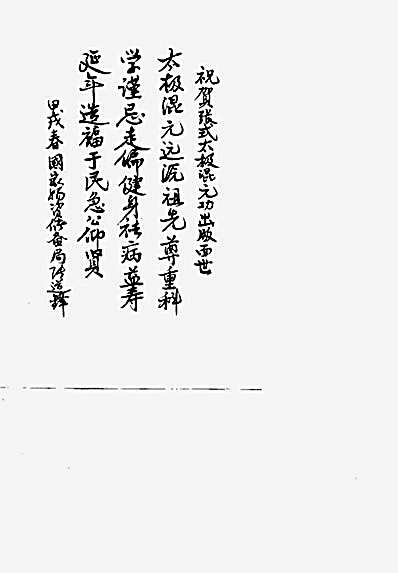 祝贺张式太极混元功出版面世
太极混元远流祖先尊重科
学谨忌走偏健身祛病益寿
延年造福于民急公仰贤
甲戌春國家物资储备局陈